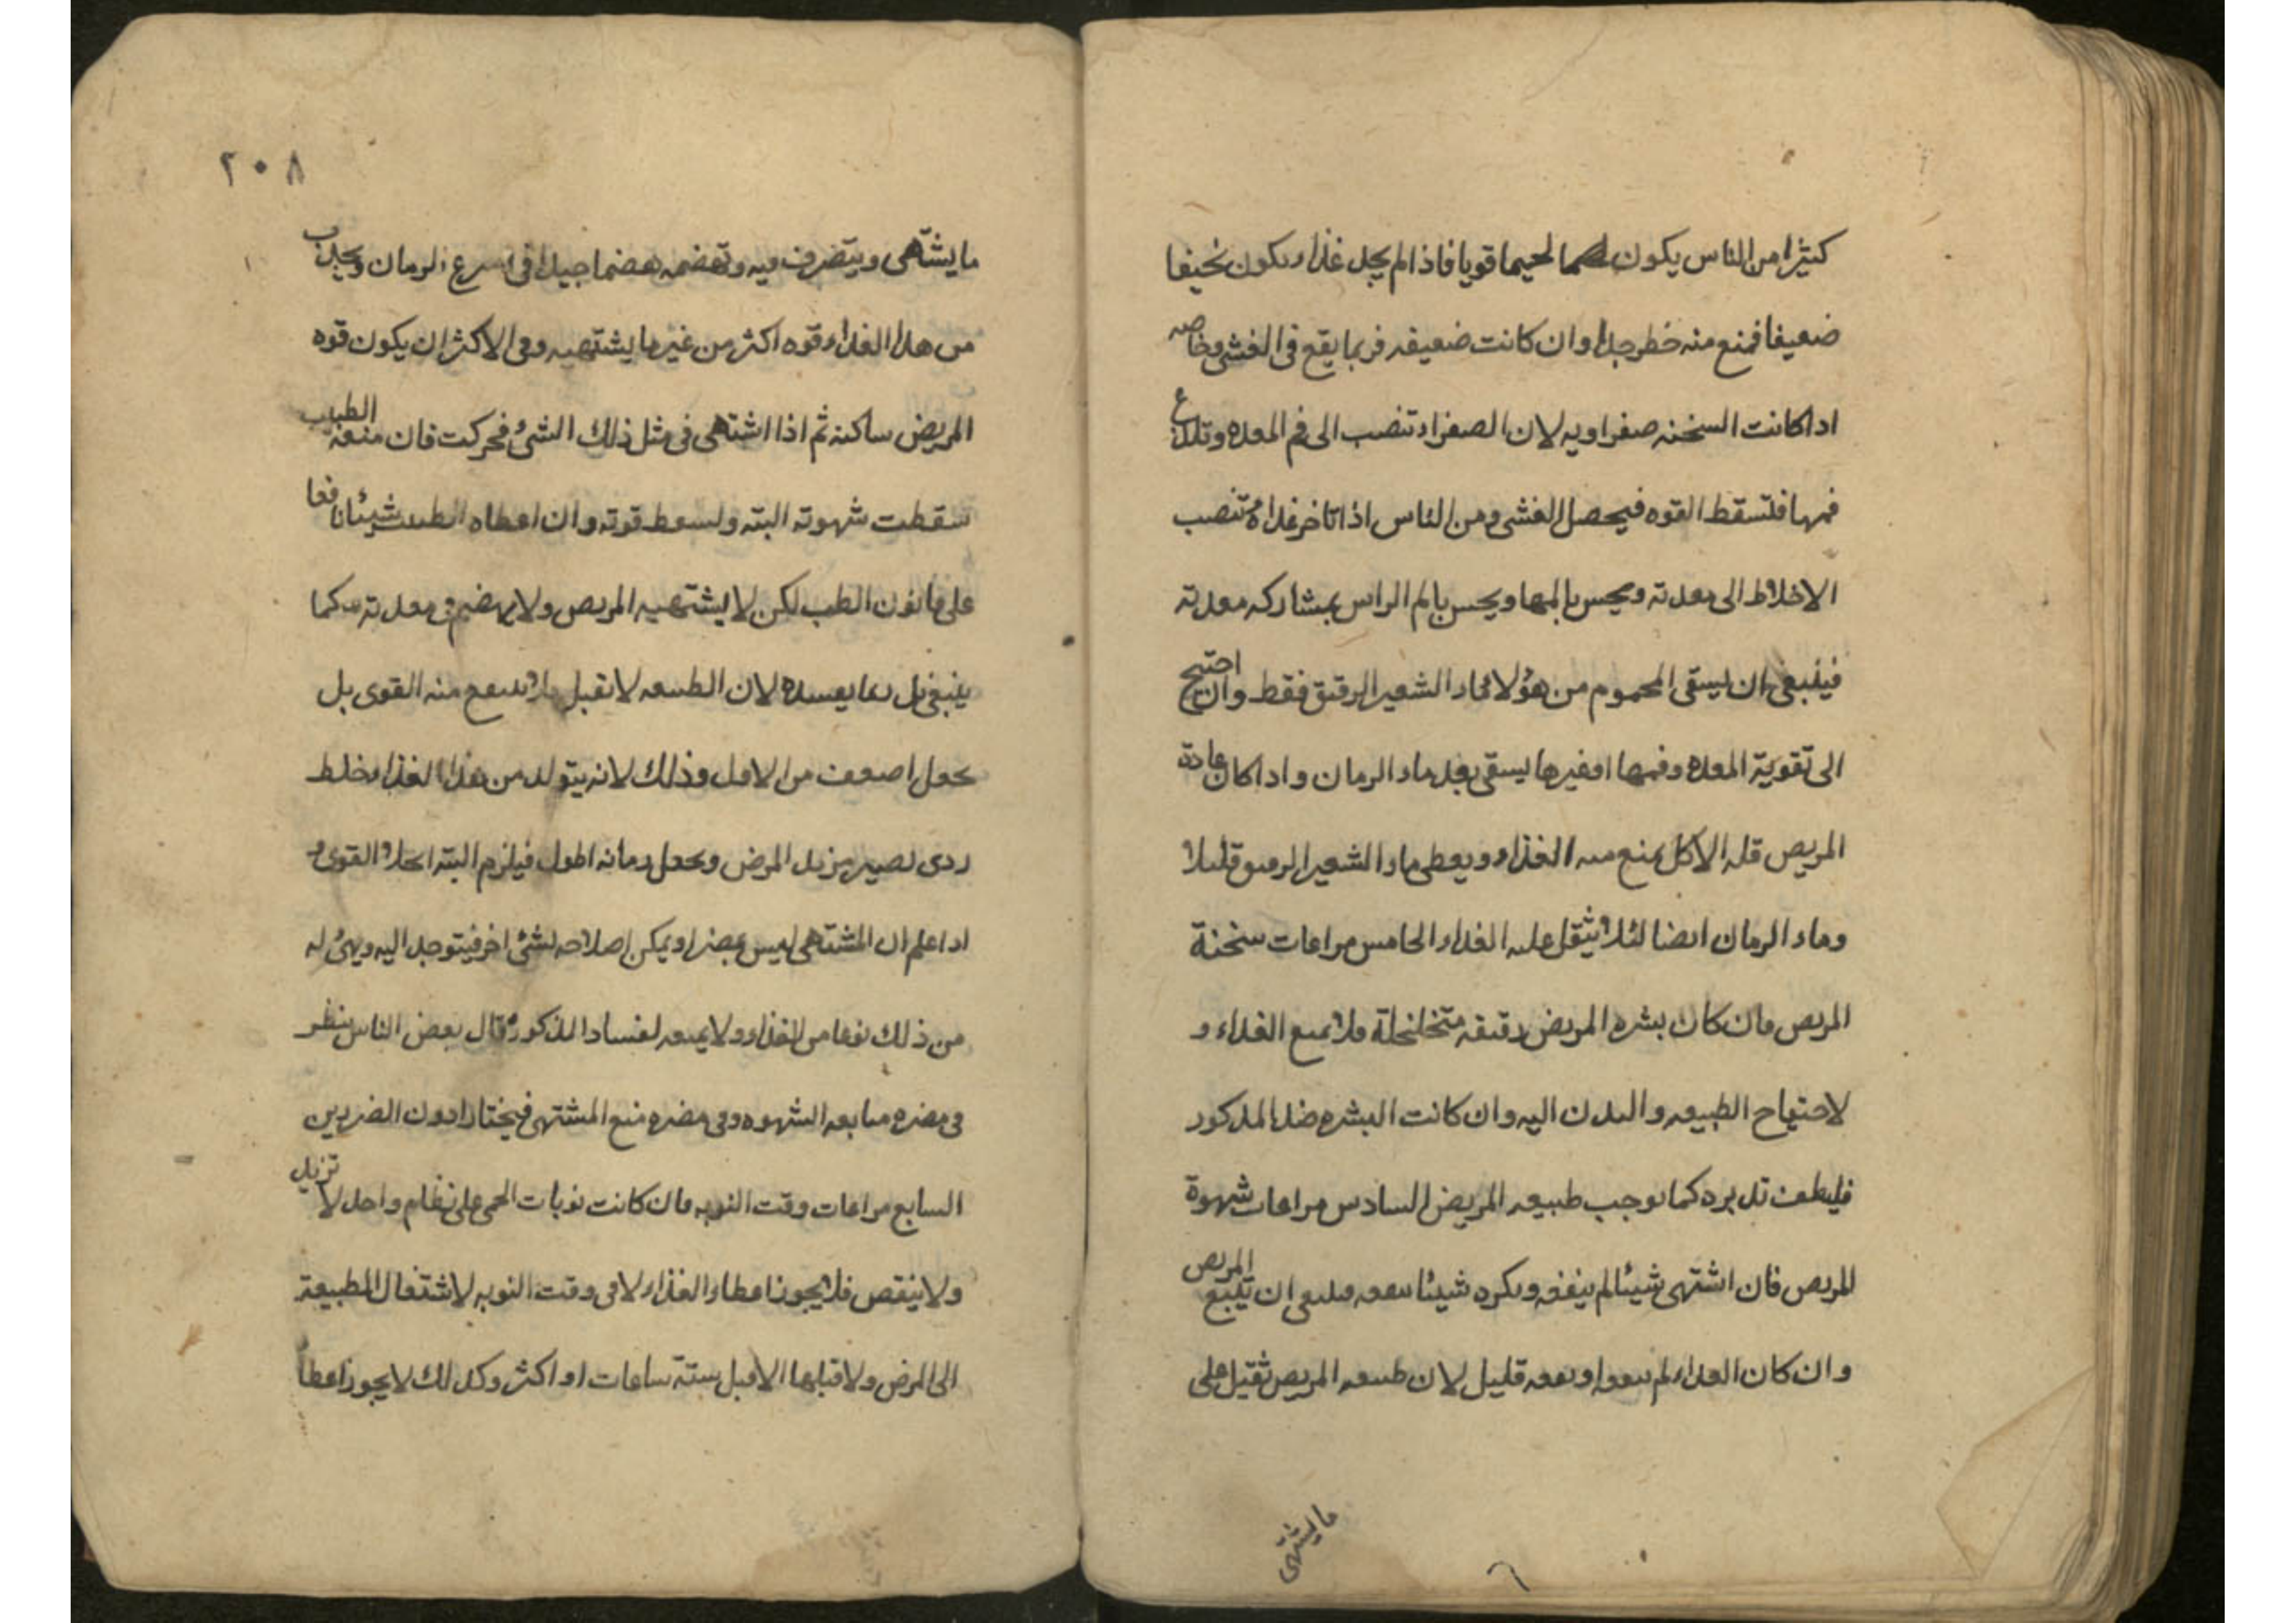 كثيرا من الناس يكون لحيما قويا فاذا لم يجد غذاء يكون نحيفا
ضعيفا فمنع منه خطر جدا وان كانت ضعيفه فربما يقع فى الغشى وخاصه
اذا كانت السخنه صفراويه لان الصفراء تنصب الى فم المعده وتلدغ
فمها فتسقط القوه فيحصل الغشى ومن الناس اذا تاخر غداؤه تنصب
الاخلاط الى معدته ويحس بالمها ويحس بالم الراس بمشاركه معدته
فينبغى ان يسقى المحموم من هؤلا ماء الشعير الرقيق فقط وان احتيج
الى تقوية المعده وفمها اوغيرها يسقى بعد ماء الرمان واذا كان عادة
المريض قله الاكل يمنع منه الغذاء ويعطى ماء الشعير الرقيق قليلا
وماء الرمان ايضا لئلا يثقل عليه الغداء الخامس مراعات سخنة
المريض فان كان بشره المريض رقيقه متخلخلة فلا يمنع الغداء و
لاحتياج الطبيعه والبدن اليه وان كانت البشره ضد المذكور
فليطف تدبيره كما توجب طبيعه المريض السادس مراعات شهوة
المريض فان اشتهى شيئا لم ينفعه ويكره شيئا ينفعه فينبغى ان يتبع المريض
وان كان الغداء لم ينفعه او نفعه قليل لان طبيعه المريض تقبل على
مايشتهى
٢٠٨
مايشتهى ويتصرف فيه وتهضمه هضما جيدا فى اسرع الزمان ويجلب
من هذا الغداء قوه اكثر من غير ما يشتهيه وفى الاكثر ان يكون قوه
المريض ساكنه ثم اذا اشتهى فى مثل ذلك الشئ فحركت فان منعه الطبيب
سقطت شهوته البته وتسقط قوته وان اعطاه الطبيب شيئا نافعا
على قانون الطب لكن لا يشتهيه المريض ولا يهضم فى معدته كما
ينبغى بل ربما يفسده لان الطبيعه لا تقبل فلا تنتفع منه القوى بل
يجعل اضعف من الاول وذلك لانه يتولد من هذا الغذاء خلط
ردى يصير يزيد المرض ويجعل زمانه اطول فيلزم البته انحلال القوى و
اذا علم ان المشتهى ليس بمضر او يمكن اصلاحه بشئ اخر فيتوجد اليه ويهئ له
من ذلك نوعا من الغذاء ولا يمنعه لفساد المذكور وقال بعض الناس ينظر
فى مضره متابعه الشهوه وفى مضره منع المشتهى فيختار ادون الضررين
السابع مراعات وقت النوبه فان كانت نوبات الحمى على نظام واحد لا تزيد
ولا ينقص فلا يجوز اعطاء الغذاء لا فى وقت النوبه لاشتغال الطبيعة
الى المرض ولا قبلها الا قبل ستة ساعات او اكثر وكذلك لايجوز اعطا